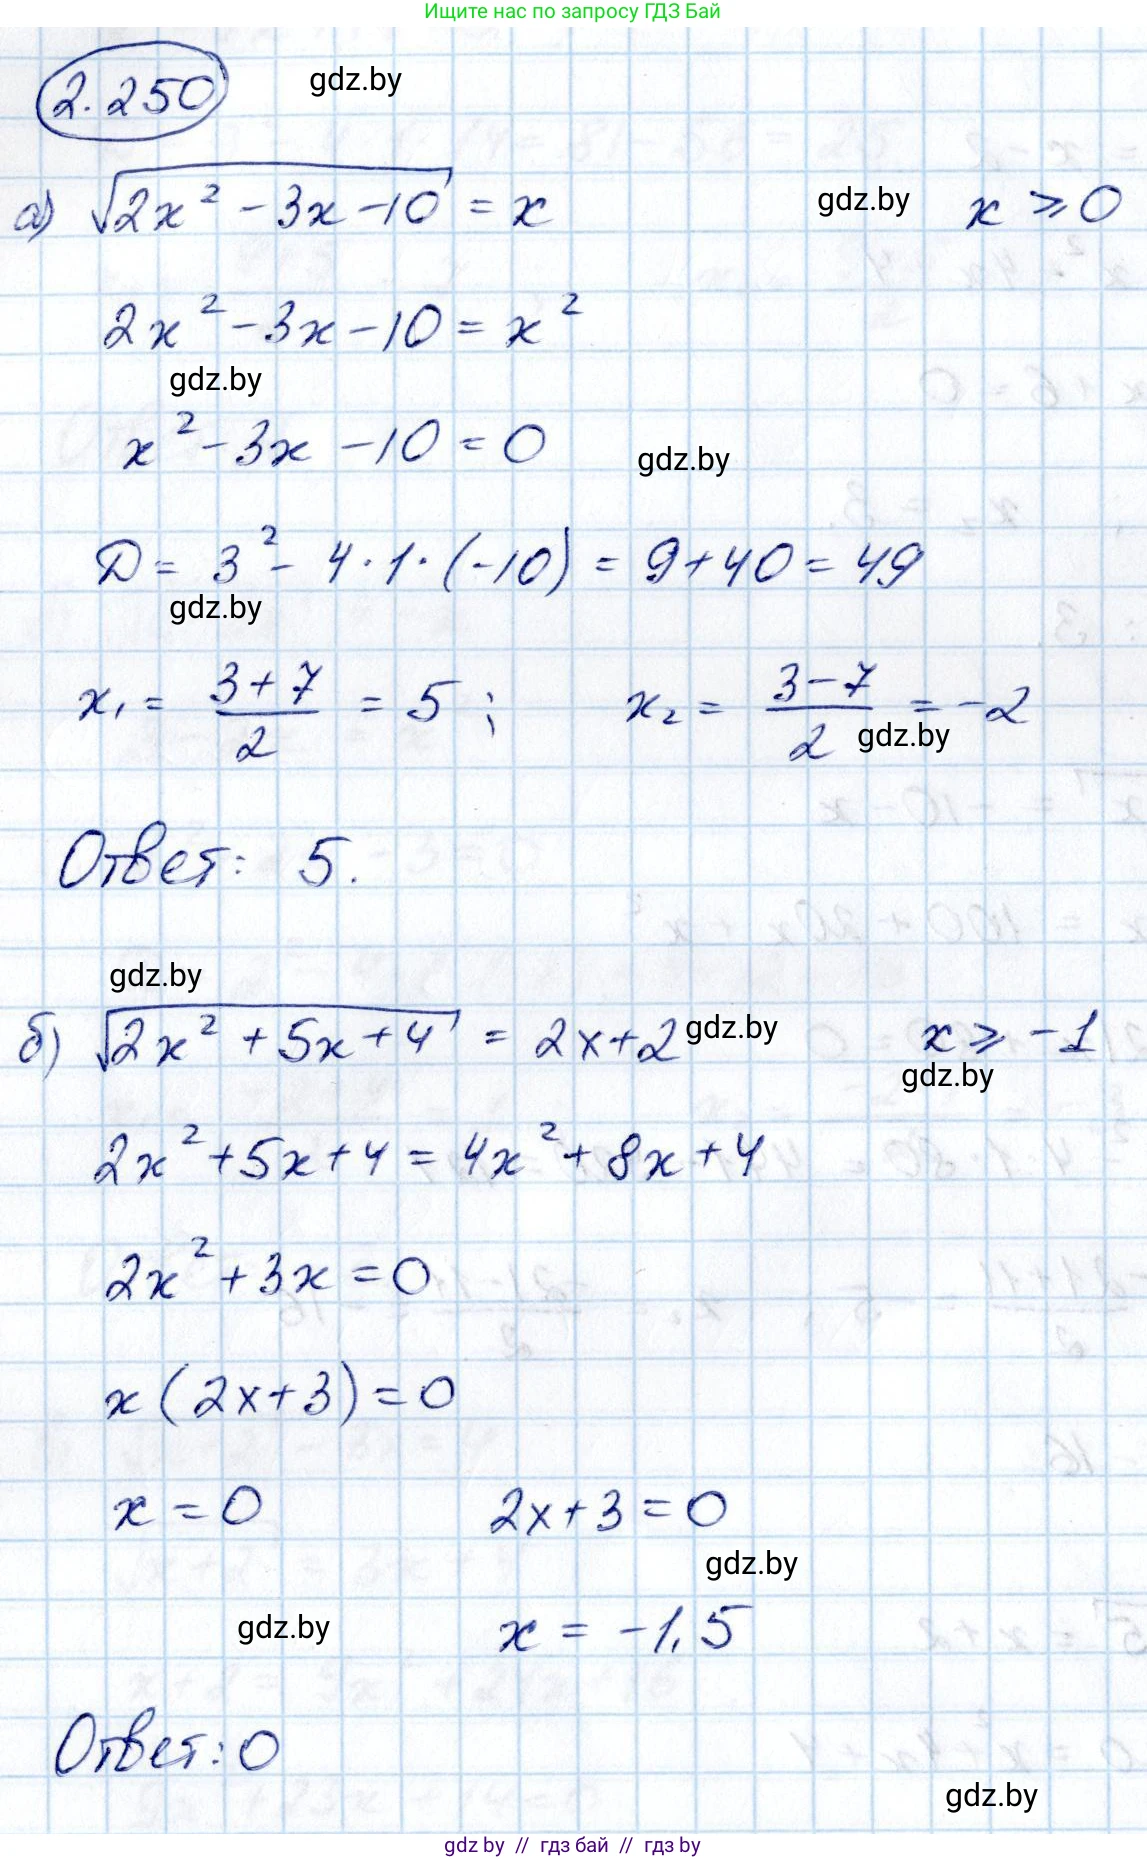 Ищите нас по запросу ГДЗ Бай
2.250
gdz.by
а) √(2x² - 3x - 10) = x
gdz.by
x ⩾ 0
2x² - 3x - 10 = x²
gdz.by
x² - 3x - 10 = 0
gdz.by
D = 3² - 4·1·(-10) = 9 + 40 = 49
gdz.by
x₁ = (3+7)/2 = 5 ; x₂ = (3-7)/2 = -2
gdz.by
Ответ: 5.
gdz.by
б) √(2x² + 5x + 4) = 2x+2
gdz.by
x ⩾ -1
gdz.by
2x² + 5x + 4 = 4x² + 8x + 4
2x² + 3x = 0
x (2x+3) = 0
x = 0 2x+3 = 0
gdz.by
gdz.by
x = -1,5
Ответ: 0
gdz.by
gdz by // гдз бай // гдз by